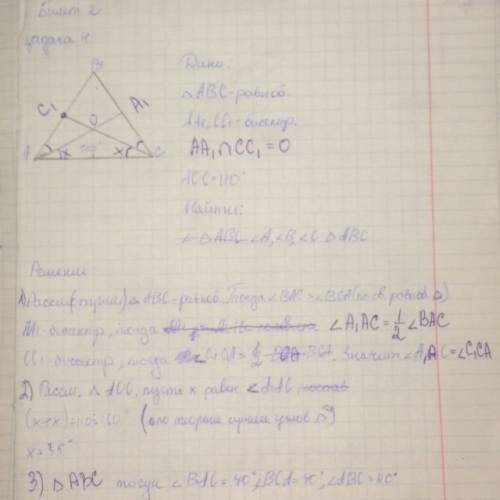 Билет 2
задача 1
B
C₁
A₁
O
A
x
110°
x
C
Дано:
△ABC-равноб.
AA₁, CC₁-биссектр.
AA₁∩CC₁=O
AOC=110°
Найти:
∠A, ∠B, ∠C △ABC
Решение
1) Рассм △ABC-равноб. Тогда ∠BAC=∠BCA (по св. равноб. △)
AA₁-биссектр, тогда ∠A₁AC=1/2∠BAC
CC₁-биссектр, тогда ∠C₁CA=1/2 BCA. Значит ∠A₁AC=∠C₁CA
2) Рассм. △AOC, пусть x равен
(x+x)+110=180° (по теореме сумме углов △)
x=35°
3) △ABC тогда ∠BAC=70°, ∠BCA=70°, ∠ABC=40°